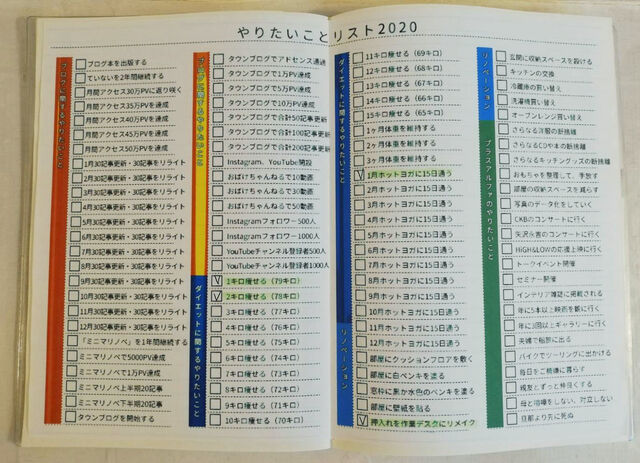 やりたいことリスト2020
ブログに関するやりたいこと
ブログ本を出版する
ていないを2年間継続する
月間アクセス30万PVに返り咲く
月間アクセス35万PVを達成
月間アクセス40万PVを達成
月間アクセス45万PVを達成
月間アクセス50万PVを達成
1月30記事更新・30記事をリライト
2月30記事更新・30記事をリライト
3月30記事更新・30記事をリライト
4月30記事更新・30記事をリライト
5月30記事更新・30記事をリライト
6月30記事更新・30記事をリライト
7月30記事更新・30記事をリライト
8月30記事更新・30記事をリライト
9月30記事更新・30記事をリライト
10月30記事更新・30記事をリライト
11月30記事更新・30記事をリライト
12月30記事更新・30記事をリライト
「ミニマリノベ」を1年間継続する
ミニマリノベで5000PV達成
ミニマリノベで1万PV達成
ミニマリノベ上半期20記事
ミニマリノベ下半期20記事
タウンブログを開始する
ブログに関するやりたいこと
タウンブログでアドセンス通過
タウンブログで1万PV達成
タウンブログで5万PV達成
タウンブログで10万PV達成
タウンブログで合計50記事更新
タウンブログで合計100記事更新
タウンブログで合計200記事更新
Instagram、YouTube開設
おばけちゃんねるで10動画
おばけちゃんねるで30動画
おばけちゃんねるで50動画
Instagramフォロワー500人
Instagramフォロワー1000人
YouTubeチャンネル登録者500人
YouTubeチャンネル登録者1000人
ダイエットに関するやりたいこと
1キロ痩せる(79キロ)
2キロ痩せる(78キロ)
3キロ痩せる(77キロ)
4キロ痩せる(76キロ)
5キロ痩せる(75キロ)
6キロ痩せる(74キロ)
7キロ痩せる(73キロ)
8キロ痩せる(72キロ)
9キロ痩せる(71キロ)
10キロ痩せる(70キロ)
ダイエットに関するやりたいこと
11キロ痩せる(69キロ)
12キロ痩せる(68キロ)
13キロ痩せる(67キロ)
14キロ痩せる(66キロ)
15キロ痩せる(65キロ)
1ヶ月体重を維持する
2ヶ月体重を維持する
3ヶ月体重を維持する
1月ホットヨガに15日通う
2月ホットヨガに15日通う
3月ホットヨガに15日通う
4月ホットヨガに15日通う
5月ホットヨガに15日通う
6月ホットヨガに15日通う
7月ホットヨガに15日通う
8月ホットヨガに15日通う
9月ホットヨガに15日通う
10月ホットヨガに15日通う
11月ホットヨガに15日通う
12月ホットヨガに15日通う
リノベーション
部屋にクッションフロアを敷く
部屋に白ペンキを塗る
窓枠に黒か水色のペンキを塗る
部屋に壁紙を貼る
押入れを作業デスクにリメイク
リノベーション
玄関に収納スペースを設ける
キッチンの交換
冷蔵庫の買い替え
洗濯機買い替え
オーブンレンジ買い替え
プラスアルファのやりたいこと
さらなる洋服の断捨離
さらなるCDや本の断捨離
さらなるキッチングッズの断捨離
おもちゃを整理して、手放す
部屋の収納スペースを減らす
写真のデータ化をしていく
CKBのコンサートに行く
矢沢永吉のコンサートに行く
HiGH&LOWの応援上映に行く
トークイベント開催
セミナー開催
インテリア雑誌に掲載される
年に5本以上映画を観に行く
年に3回以上ギャラリーに行く
夫婦で船旅に出る
バイクでツーリングに出かける
毎日をご機嫌に暮らす
親友とずっと仲良くする
母と喧嘩をしない、対立しない
旦那より先に死ぬ